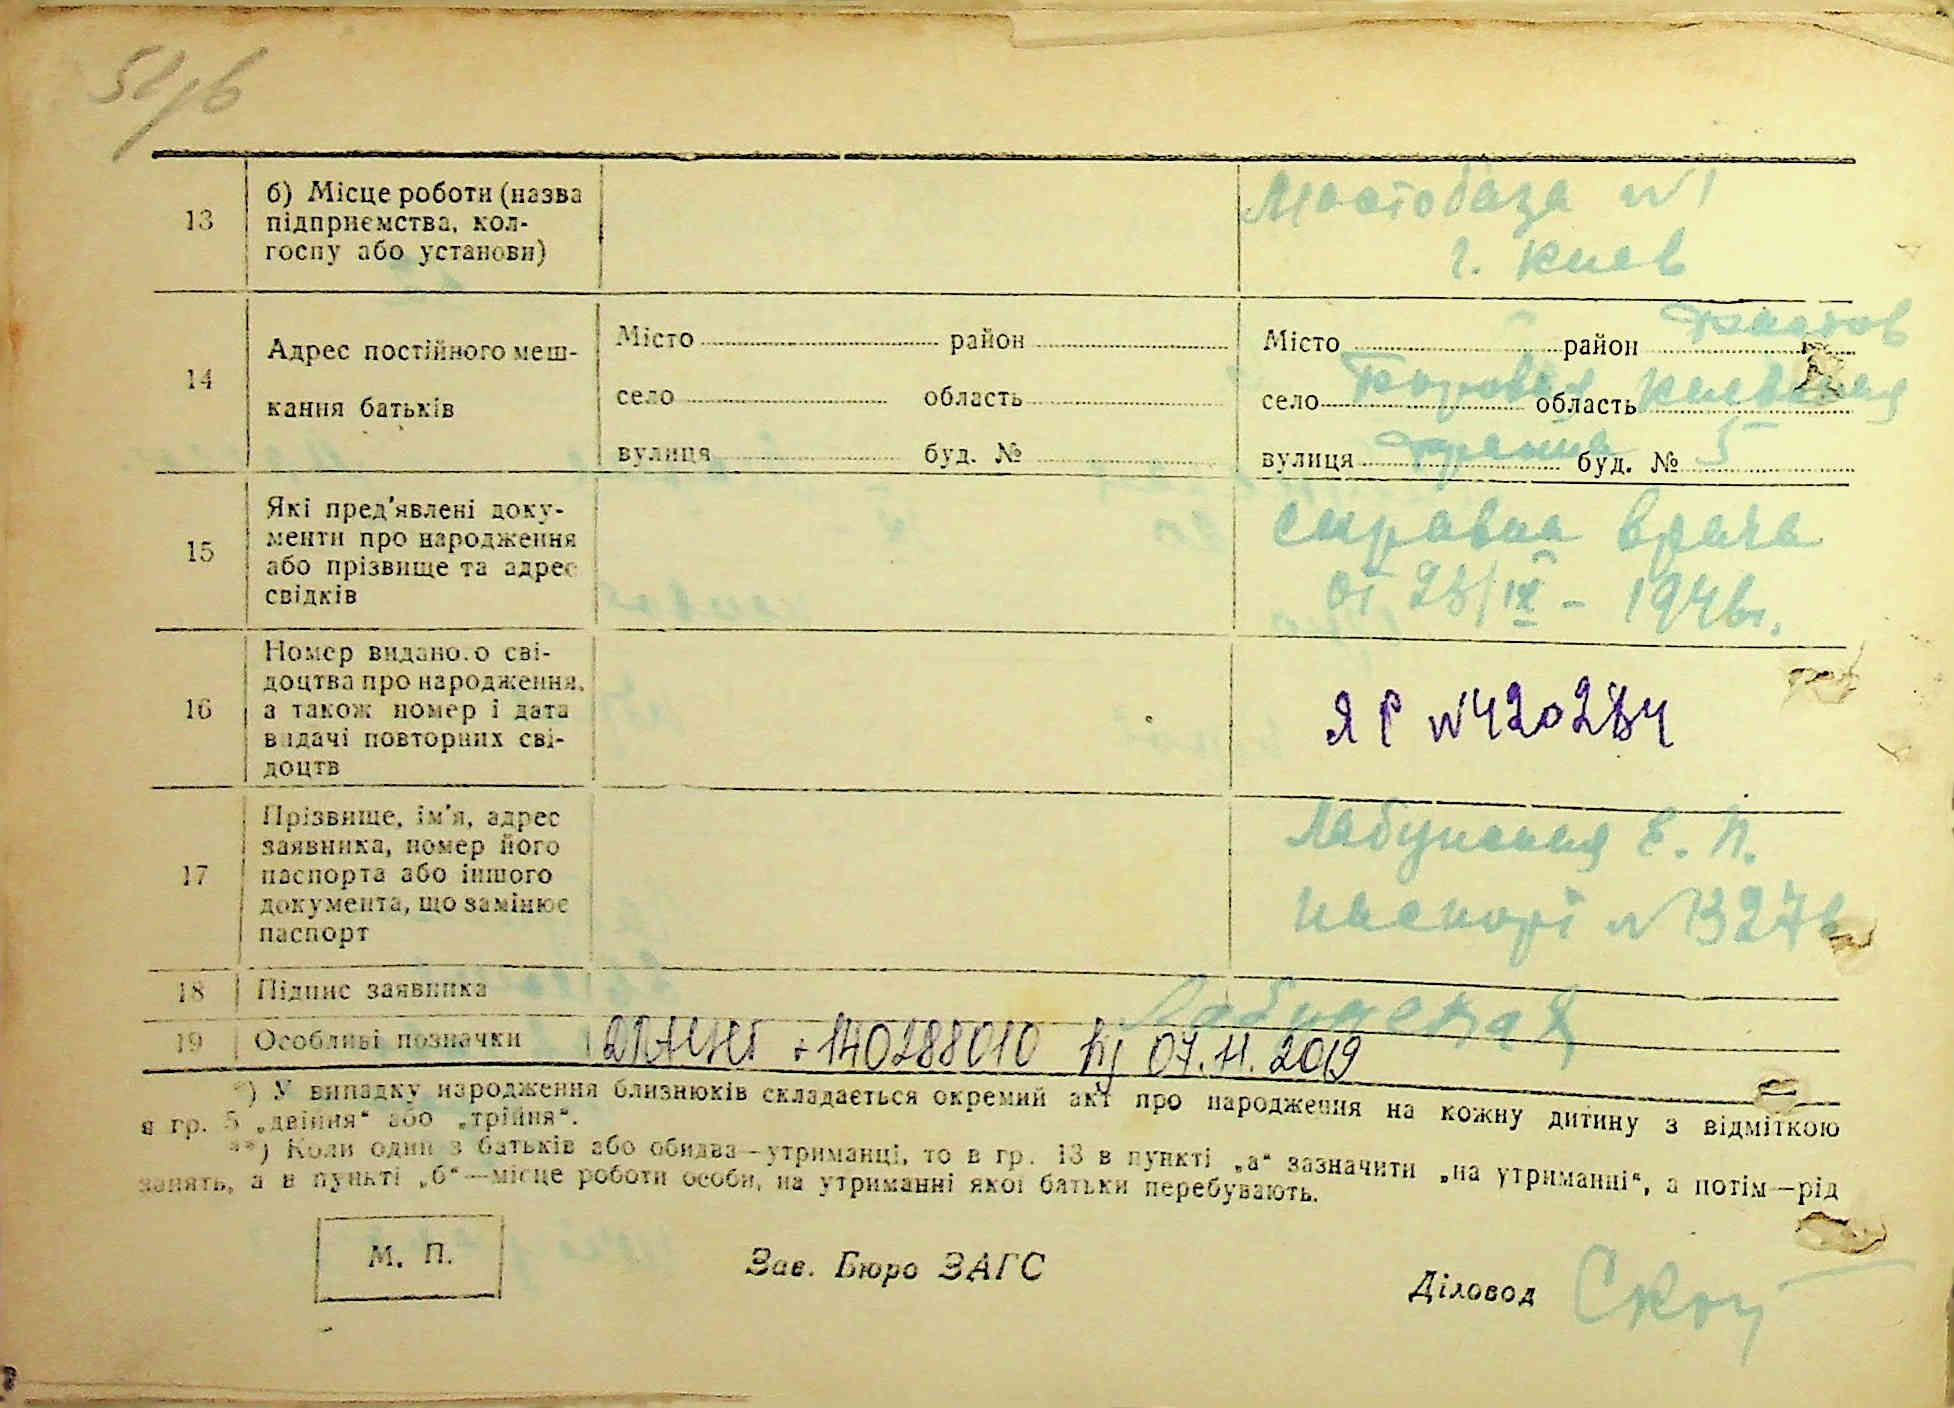 13
б) Місце роботи (назва
підприємства, кол-
госпу або установи)
Мостобаза №1
г. Киев
14
Адрес постійного меш-
кання батьків
Місто район
село область
вулиця буд. №
Місто район
село область Киевская
вулиця буд. № 5
15
Які пред'явлені доку-
менти про народження
або прізвище та адрес
свідків
справка врача
от 28/IX – 1946г.
16
Номер виданого сві-
доцтва про народження,
а також номер і дата
видачі повторних сві-
доцтв
ЯР №420284
17
Прізвище, ім'я, адрес
заявника, номер його
паспорта або іншого
документа, що замінює
паспорт
Лабунская Е. П.
паспорт №
18
Підпис заявника
Лабунская
19
Особливі позначки
140288010 07.11.2019
*) У випадку народження близнюків складається окремий акт про народження на кожну дитину з відміткою
в гр. 5 „двійня“ або „трійня“.
**) Коли один з батьків або обидва—утриманці, то в гр. 13 в пункті „а“ зазначити „на утриманні“, а потім—рід
занять, а в пункті „б“—місце роботи особи, на утриманні якої батьки перебувають.
М. П.
Зав. Бюро ЗАГС
Діловод